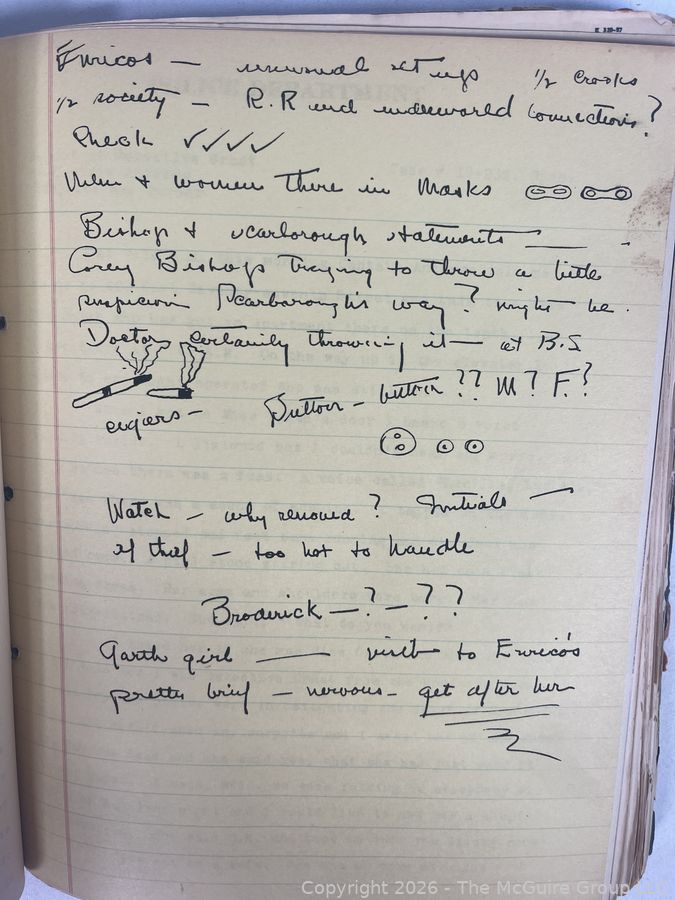 E 120-37
Enricos — unusual set ups ½ crooks
½ society — R.R and underworld connections?
Check ✓✓✓✓
Men & women there in Masks
Bishop & Scarborough statements —— -
Corey Bishop trying to throw a little
suspicion Scarborough's way? might be.
Doctor certainly throwing it — at B.S
cigars —
Button — button ?? M? F.?
Watch — why removed? Initials —
if thief — too hot to handle
Broderick — ? — ? ?
Garth girl —— visit to Enrico's
pretty brief — nervous — get after her
Copyright 2026 - The McGuire Group LLC